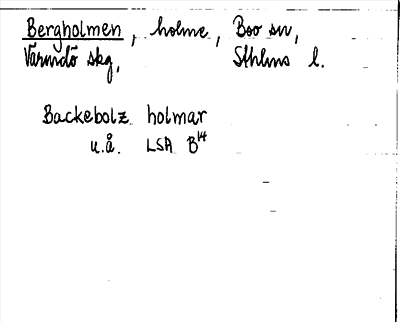 Bergholmen, holme, Boo sn,
Värmdö skg, Sthlms l.
Backebolz holmar
u.å. LSA B¹⁴